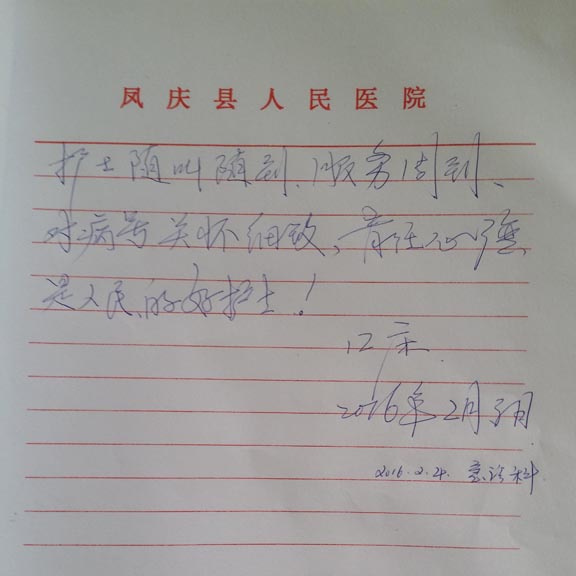 凤庆县人民医院
护士随叫随到、服务周到、
对病号关怀细致，责任心强，
是人民的好护士！
江
2016年2月
2016.2.24. 急诊科